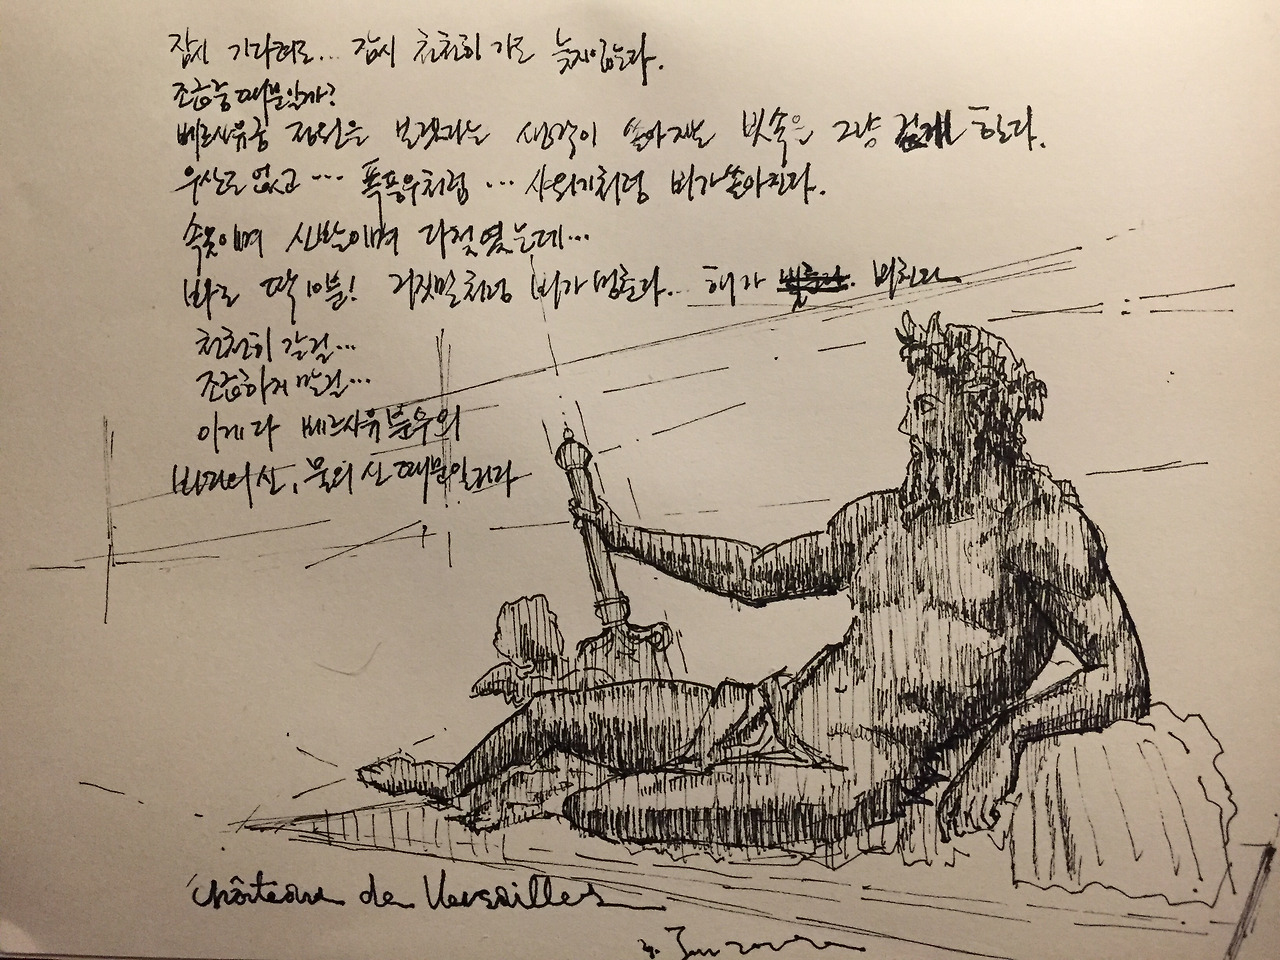 잠시 기다려도... 잠시 천천히 가도 늦지않는다.
조급증 때문일까?
베르사유궁 정원을 보겠다는 생각이 쏟아지는 빗속을 그냥 걷게 한다.
우산도 없고... 폭풍우처럼... 샤워기처럼 비가 쏟아진다.
속옷이며 신발이며 다 젖었는데...
바로 딱 10분! 거짓말처럼 비가 멈춘다. 해가 비친다
천천히 갈걸...
조급하지 말걸...
이게 다 베르사유 분수의
바다의 신, 물의 신 때문일거다
Château de Versailles